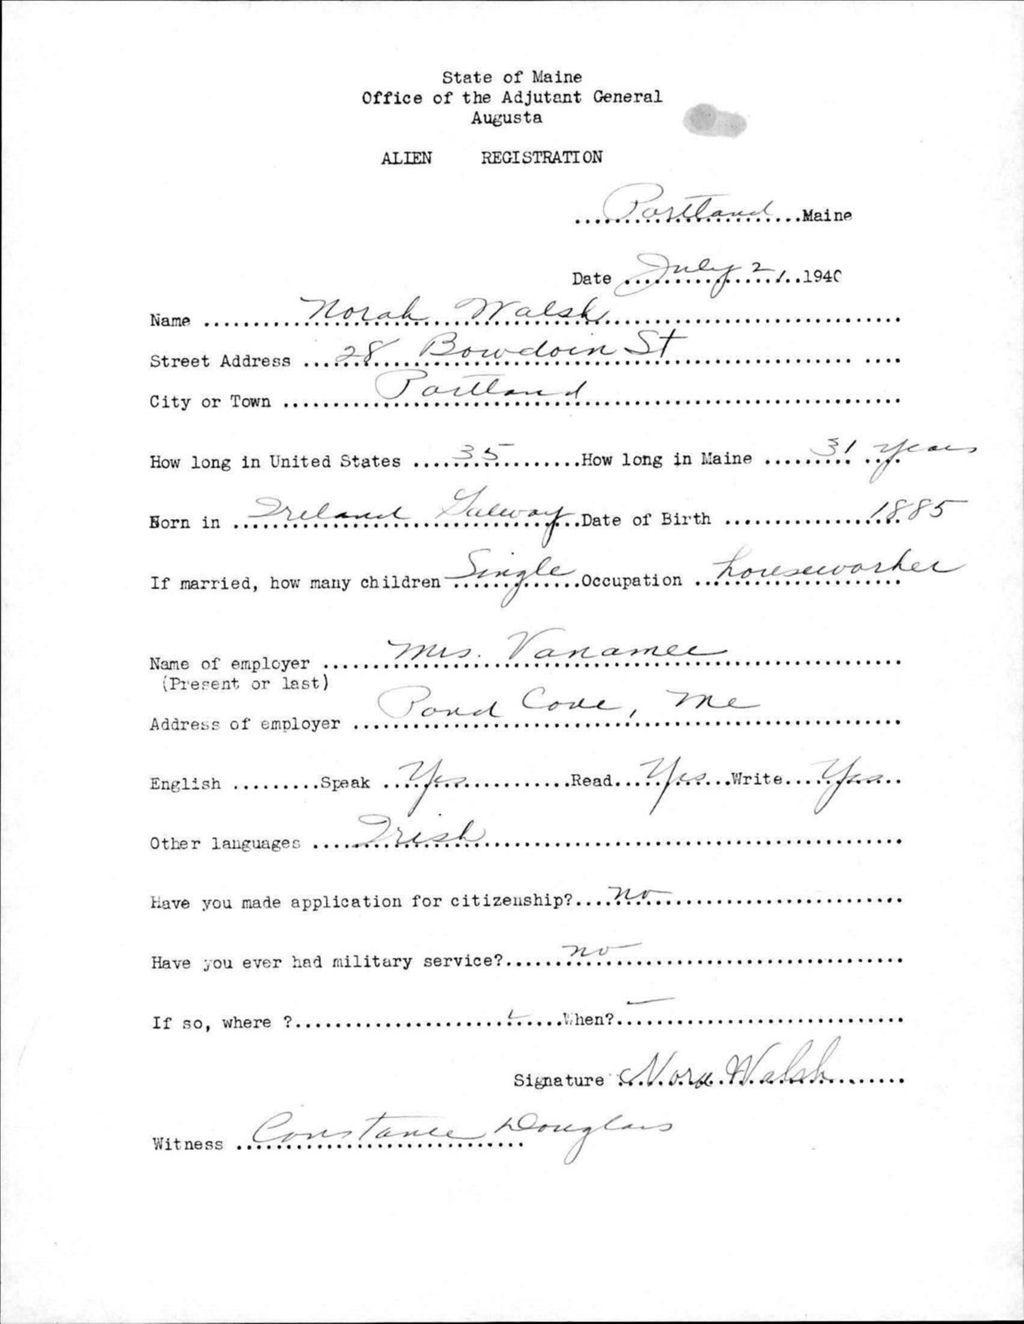 State of Maine
Office of the Adjutant General
Augusta
ALIEN REGISTRATION
....Portland....Maine
Date ....July 2....1940
Name ....Norah Walsh....
Street Address ....28 Bowdoin St....
City or Town ....Portland....
How long in United States ....35....How long in Maine ....31 years....
Born in ....Ireland Galway....Date of Birth ....1885
If married, how many children ....Single....Occupation ....houseworker
Name of employer ....Mrs. Vanamee....
(Present or last)
Address of employer ....Pond Cove, Me....
English .........Speak ....Yes....Read....Yes....Write....Yes....
Other languages ....Irish....
Have you made application for citizenship?....no....
Have you ever had military service?....no....
If so, where ?........When?....—....
Signature ....Nora Walsh....
Witness ....Constance Douglass....